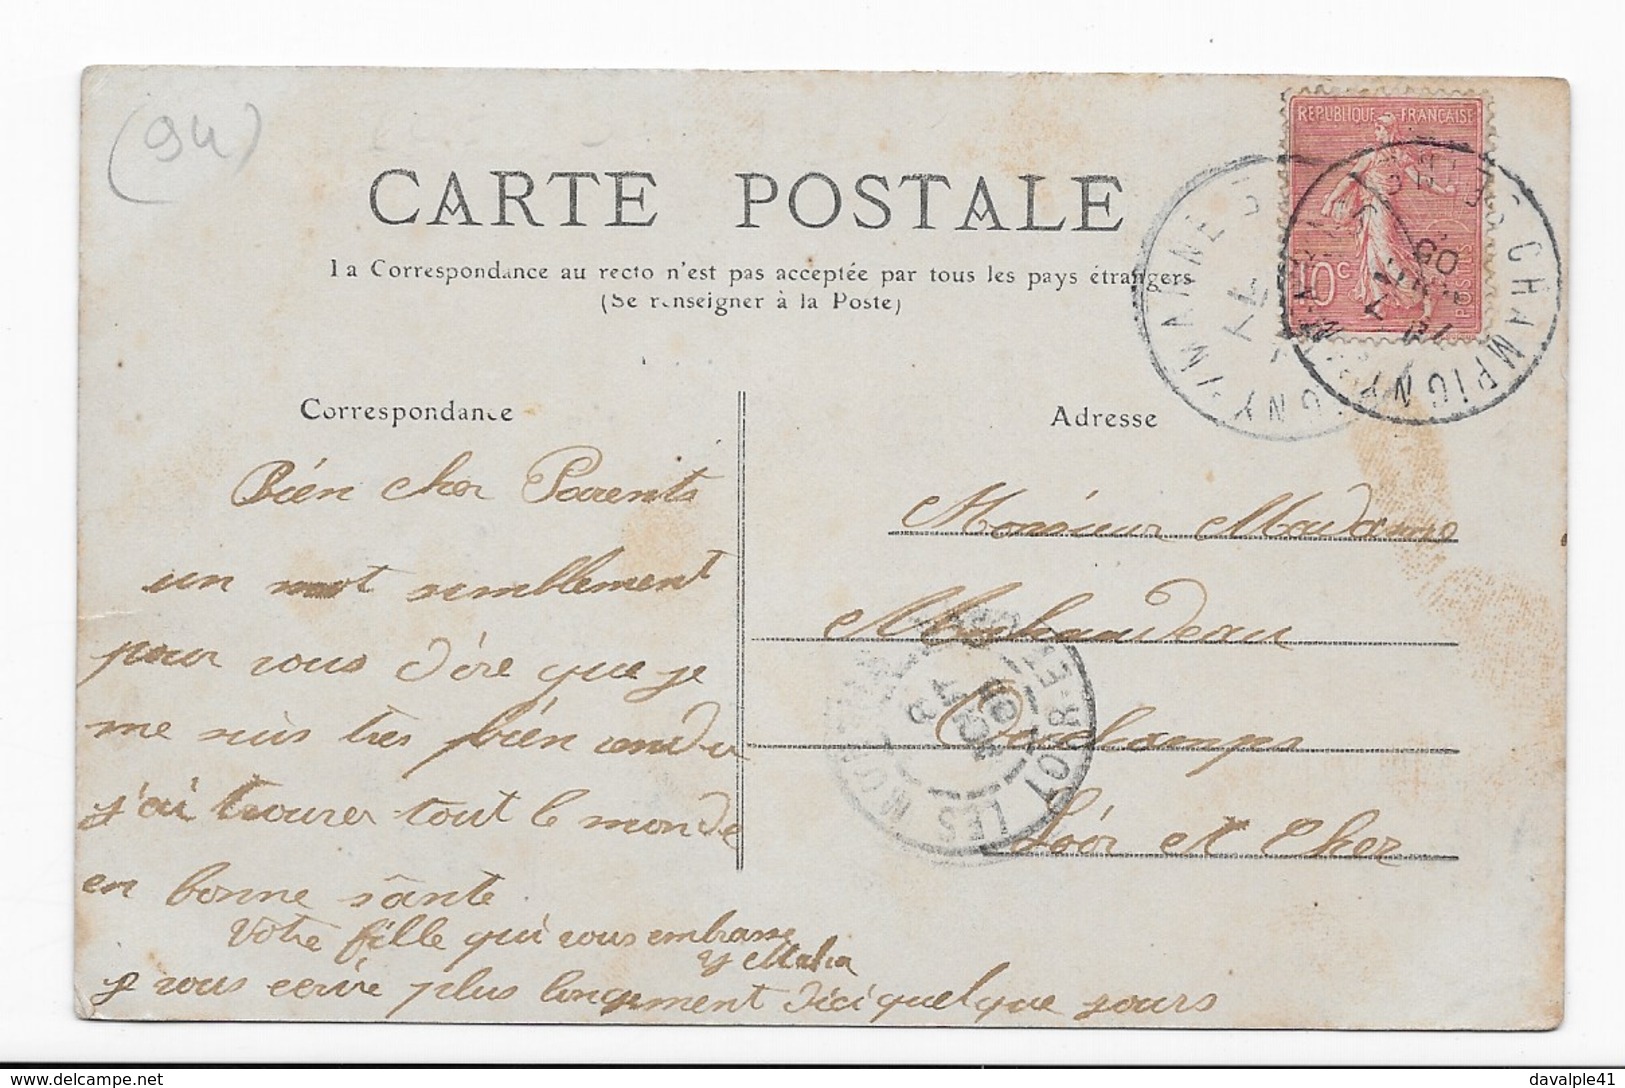 (94)
CARTE POSTALE
La Correspondance au recto n'est pas acceptée par tous les pays étrangers
(Se renseigner à la Poste)
REPUBLIQUE FRANÇAISE
10c POSTES
CHAMPIGNY
MARNE
Correspondance
Bién cher Parents
un mot semblement
pour vous d'ire que je
me suis très bién rendu
j'ai trouver tout le monde
en bonne sànte
Votre fille qui vous embrasse
je vous ecrire plus longement d'ici quelque jours
Adresse
Monsieur Madame
Conchamps
Loir et Cher
Delcampe.net
davalple41